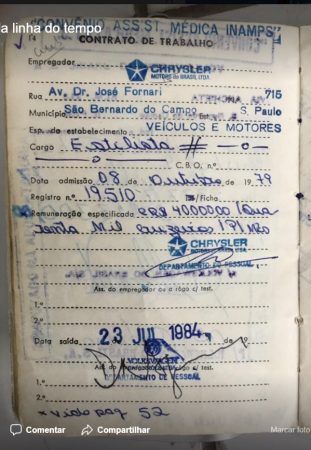 a linha do tempo
"CONVÊNIO, ASS.ST. MÉDICA INAMPS"
CONTRATO DE TRABALHO
Empregador
CHRYSLER
MOTORS do BRASIL LTDA.
Rua Av. Dr. José Fornari 715
Município São Bernardo do Campo S. Paulo
Esp. do estabelecimento VEÍCULOS E MOTORES
Cargo Estilista # — o —
— o — C.B.O. n.º
Data admissão 08 de Outubro de 1979
Registro n.º 19510 /Ficha
Remuneração especificada 40000,00 (Qua
renta Mil cruzeiros P/ Mês
CHRYSLER
MOTORS do BRASIL LTDA.
DEPARTAMENTO DE PESSOAL
Ass. do empregador ou a rôgo c/ test.
1.º
2.º
Data saída 23 JUL 1984
VOLKSWAGEN
DEPARTAMENTO DE PESSOAL
1.º
2.º
x vide pag 52
Comentar Compartilhar Marcar foto